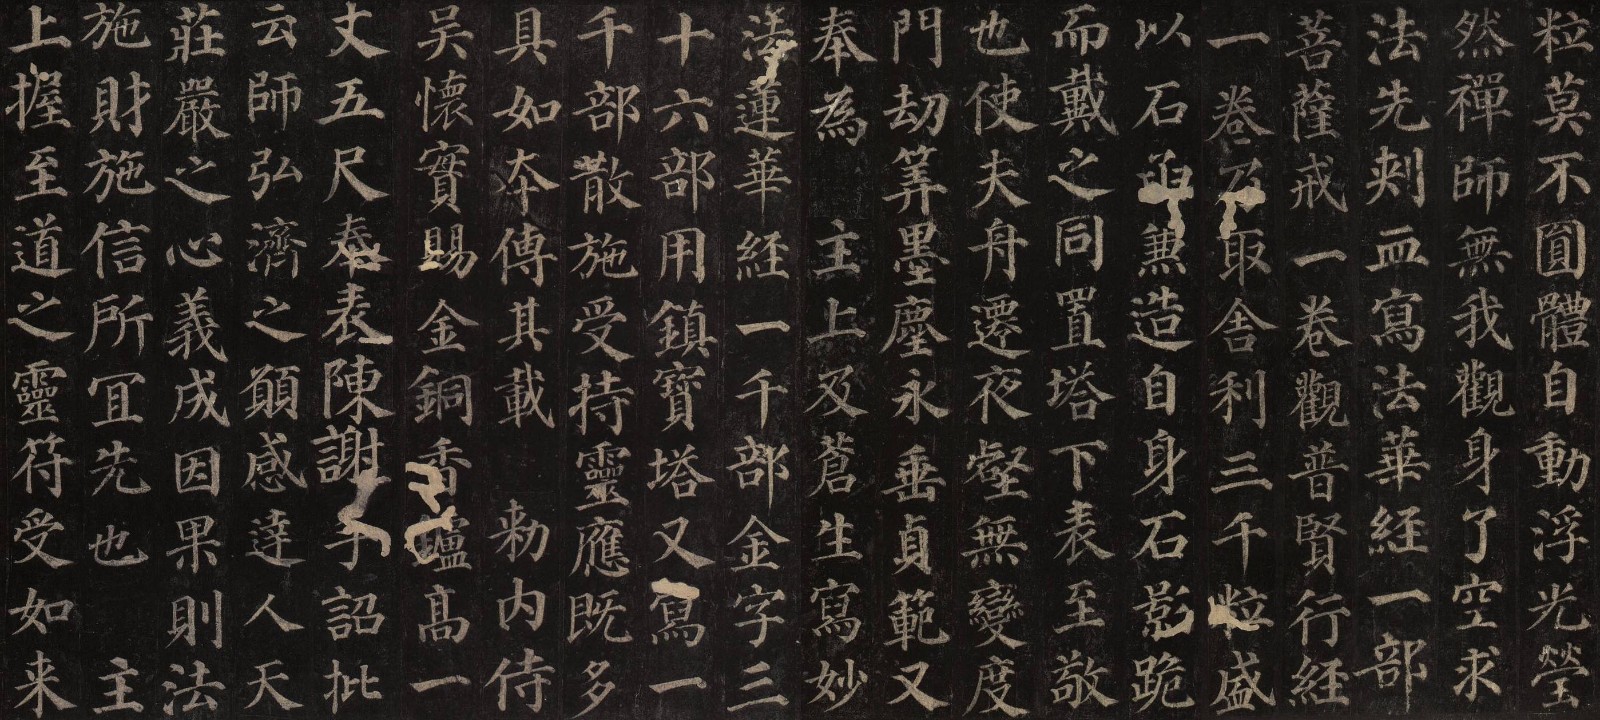 粒莫不圓體自動浮光瑩
然禪師無我觀身了空求
法先刾血寫法華經一部
菩薩戒一卷觀普賢行經
一卷乃取舍利三千粒盛
以石函兼造自身石影跪
而戴之同置塔下表至敬
也使夫舟遷夜壑無變度
門劫筭墨塵永垂貞範又
奉為 主上及蒼生寫妙
法蓮華經一千部金字三
十六部用鎮寶塔又寫一
千部散施受持靈應既多
具如本傳其載 勑内侍
吴懷實賜金銅香鑪高一
丈五尺奉表陳謝手詔批
云師弘濟之願感達人天
莊嚴之心義成因果則法
施財施信所宜先也 主
上握至道之靈符受如来